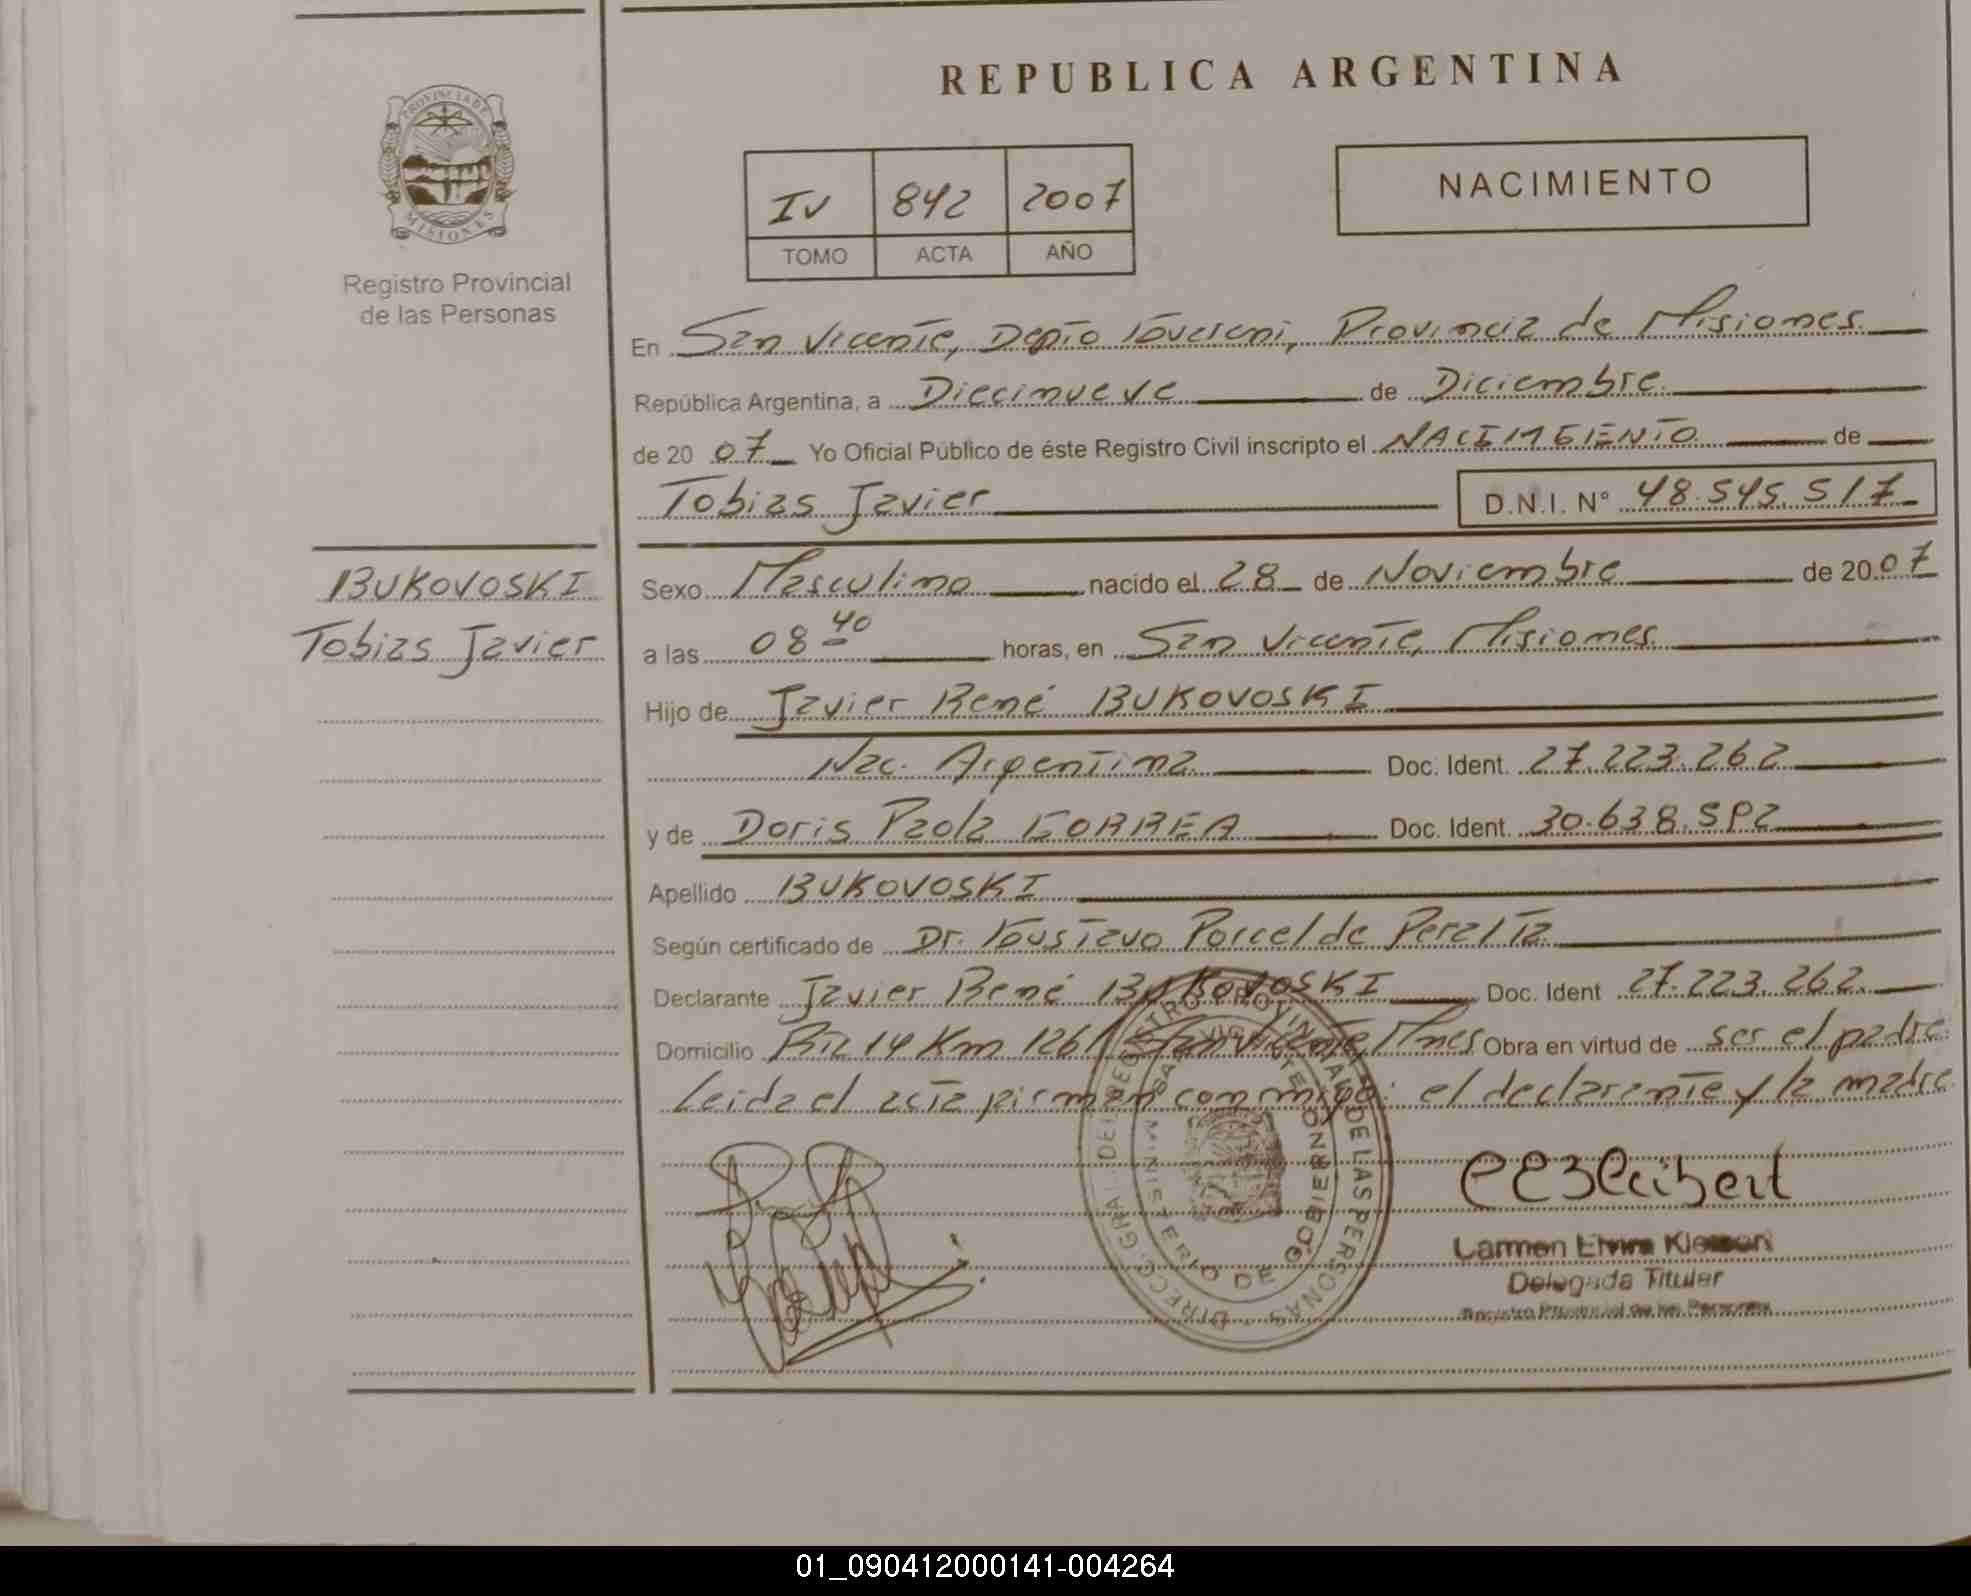 REPUBLICA ARGENTINA
PROVINCIA DE
MISIONES
Registro Provincial
de las Personas
IV 842 2007
TOMO ACTA AÑO
NACIMIENTO
En San Vicente, Depto Guaraní, Provincia de Misiones
República Argentina, a Diecinueve de Diciembre
de 2007 Yo Oficial Público de éste Registro Civil inscripto el NACIMIENTO de
Tobias Javier D.N.I. N° 48.545.517
BUKOVOSKI
Tobias Javier
Sexo Masculino nacido el 28 de Noviembre de 2007
a las 08 40 horas, en San Vicente, Misiones
Hijo de Javier René BUKOVOSKI
Nac. Argentina Doc. Ident. 27.223.262
y de Doris Paola CORREA Doc. Ident. 30.638.
Apellido BUKOVOSKI
Según certificado de Dr. Gustavo Porcel de Peralta
Declarante Javier René BUKOVOSKI Doc. Ident 27.223.262
Domicilio Rta 14 Km 1261 San Vicente, Mnes Obra en virtud de ser el padre
Leida el acta firman conmigo: el declarante y la madre
DIRECC. GRAL. DEL REGISTRO PROVINCIAL DE LAS PERSONAS
SAN VICENTE
MINISTERIO DE GOBIERNO
Carmen Elvira
Delegada Titular
Registro Provincial de las Personas
01_090412000141-004264